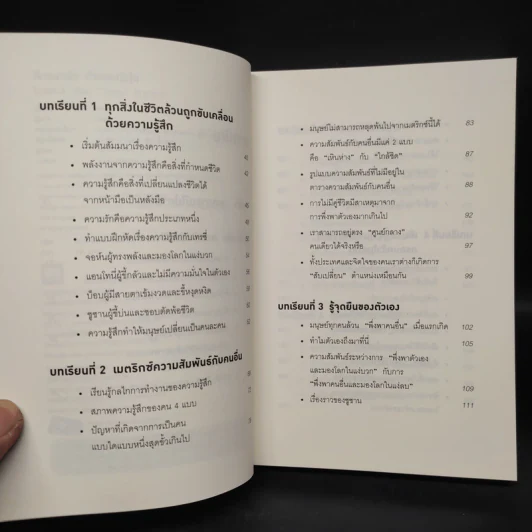 บทเรียนที่ 1 ทุกสิ่งในชีวิตล้วนถูกขับเคลื่อน
ด้วยความรู้สึก
• เริ่มต้นสัมมนาเรื่องความรู้สึก
• พลังงานจากความรู้สึกคือสิ่งที่กำหนดชีวิต
• ความรู้สึกคือสิ่งที่เปลี่ยนแปลงชีวิตได้
จากหน้ามือเป็นหลังมือ
• ความรักคือความรู้สึกประเภทหนึ่ง
• ทำแบบฝึกหัดเรื่องความรู้สึกกับเทซี่
• จอห์นผู้ทรงพลังและมองโลกในแง่บวก
• แอนโทนี่ผู้ขี้กลัวและไม่มีความมั่นใจในตัวเอง
• บ๊อบผู้มีสายตาเข้มงวดและขี้หงุดหงิด
• ซูซานผู้ขี้บ่นและชอบตัดพ้อชีวิต
• ความรู้สึกทำให้มนุษย์เปลี่ยนเป็นคนละคน
บทเรียนที่ 2 เมตริกซ์ความสัมพันธ์กับคนอื่น
• เรียนรู้กลไกการทำงานของความรู้สึก
• สภาพความรู้สึกของคน 4 แบบ
• ปัญหาที่เกิดจากการเป็นคน
แบบใดแบบหนึ่งสุดขั้วเกินไป
• มนุษย์ไม่สามารถหลุดพ้นไปจากเมตริกซ์นี้ได้ 83
• ความสัมพันธ์กับคนอื่นมีแค่ 2 แบบ
คือ “เหินห่าง” กับ “ใกล้ชิด” 87
• รูปแบบความสัมพันธ์ที่ไม่มีอยู่ใน
ตารางความสัมพันธ์กับคนอื่น 88
• การไม่มีคู่ชีวิตมีสาเหตุมาจาก
การพึ่งพาตัวเองมากเกินไป 92
• เราสามารถอยู่ตรง “ศูนย์กลาง”
คนเดียวได้จริงหรือ 97
• ทั้งประเทศและจิตใจของคนเราต่างก็เกิดการ
“สับเปลี่ยน” ตำแหน่งเหมือนกัน 99
บทเรียนที่ 3 รู้จุดยืนของตัวเอง
• มนุษย์ทุกคนล้วน “พึ่งพาคนอื่น” เมื่อแรกเกิด 102
• ทำไมตัวเองถึงมาที่นี่ 105
• ความสัมพันธ์ระหว่างการ “พึ่งพาตัวเอง
และมองโลกในแง่บวก” กับการ
“พึ่งพาคนอื่นและมองโลกในแง่ลบ” 108
• เรื่องราวของซูซาน 111